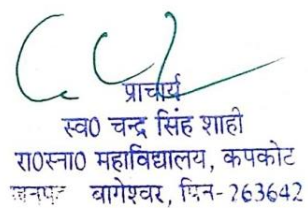 प्राचार्य
स्व0 चन्द्र सिंह शाही
रा0स्ना0 महाविद्यालय, कपकोट
जनपद बागेश्वर, पिन-263642